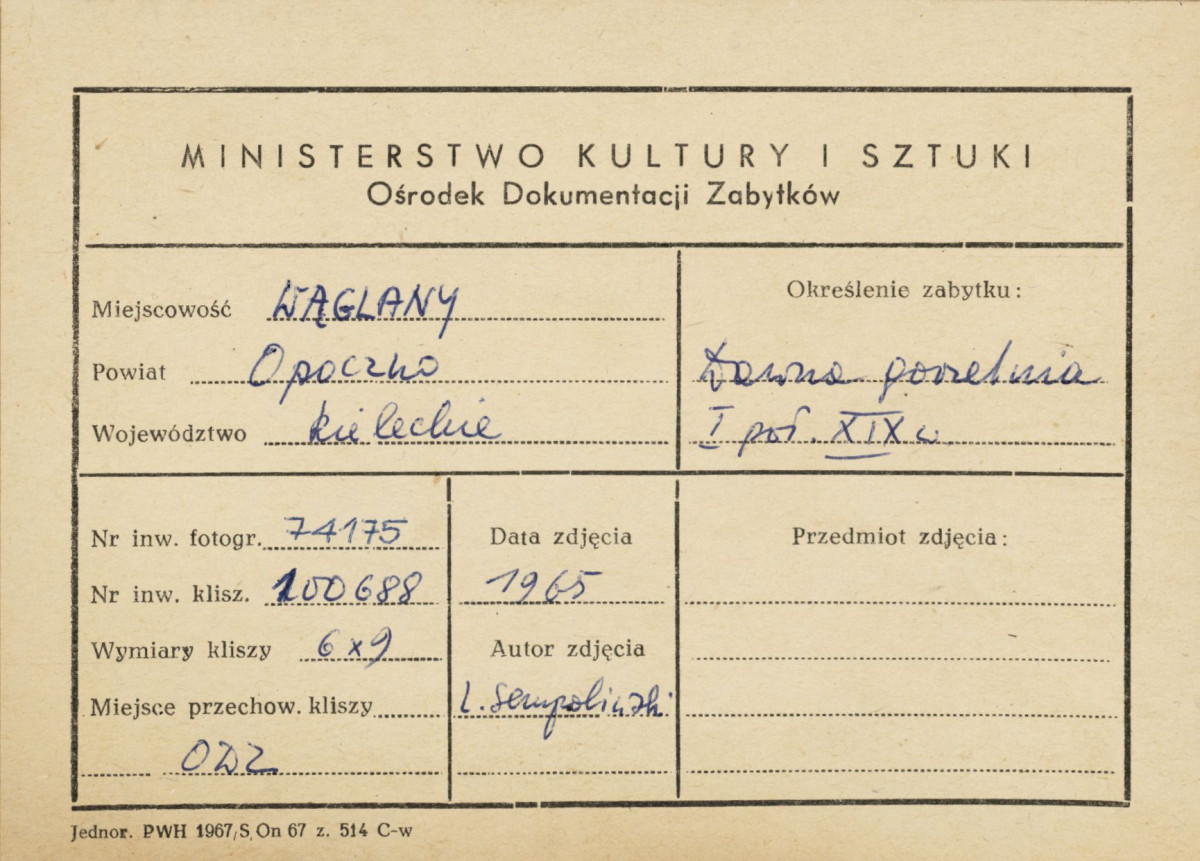 MINISTERSTWO KULTURY I SZTUKI
Ośrodek Dokumentacji Zabytków
Miejscowość WĄGLANY
Powiat Opoczno
Województwo kieleckie
Określenie zabytku:
Dawna gorzelnia
I poł. XIX w.
Nr inw. fotogr. 74175
Nr inw. klisz. 100688
Wymiary kliszy 6x9
Miejsce przechow. kliszy
ODZ
Data zdjęcia
1965
Autor zdjęcia
L. Sempoliński
Przedmiot zdjęcia:
Jednor. PWH 1967/S. On 67 z. 514 C-w